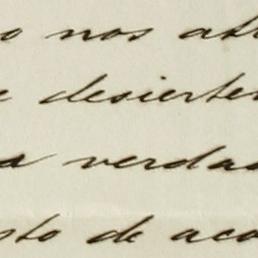 o nos ab
e desierten
a verdad
sto de aco